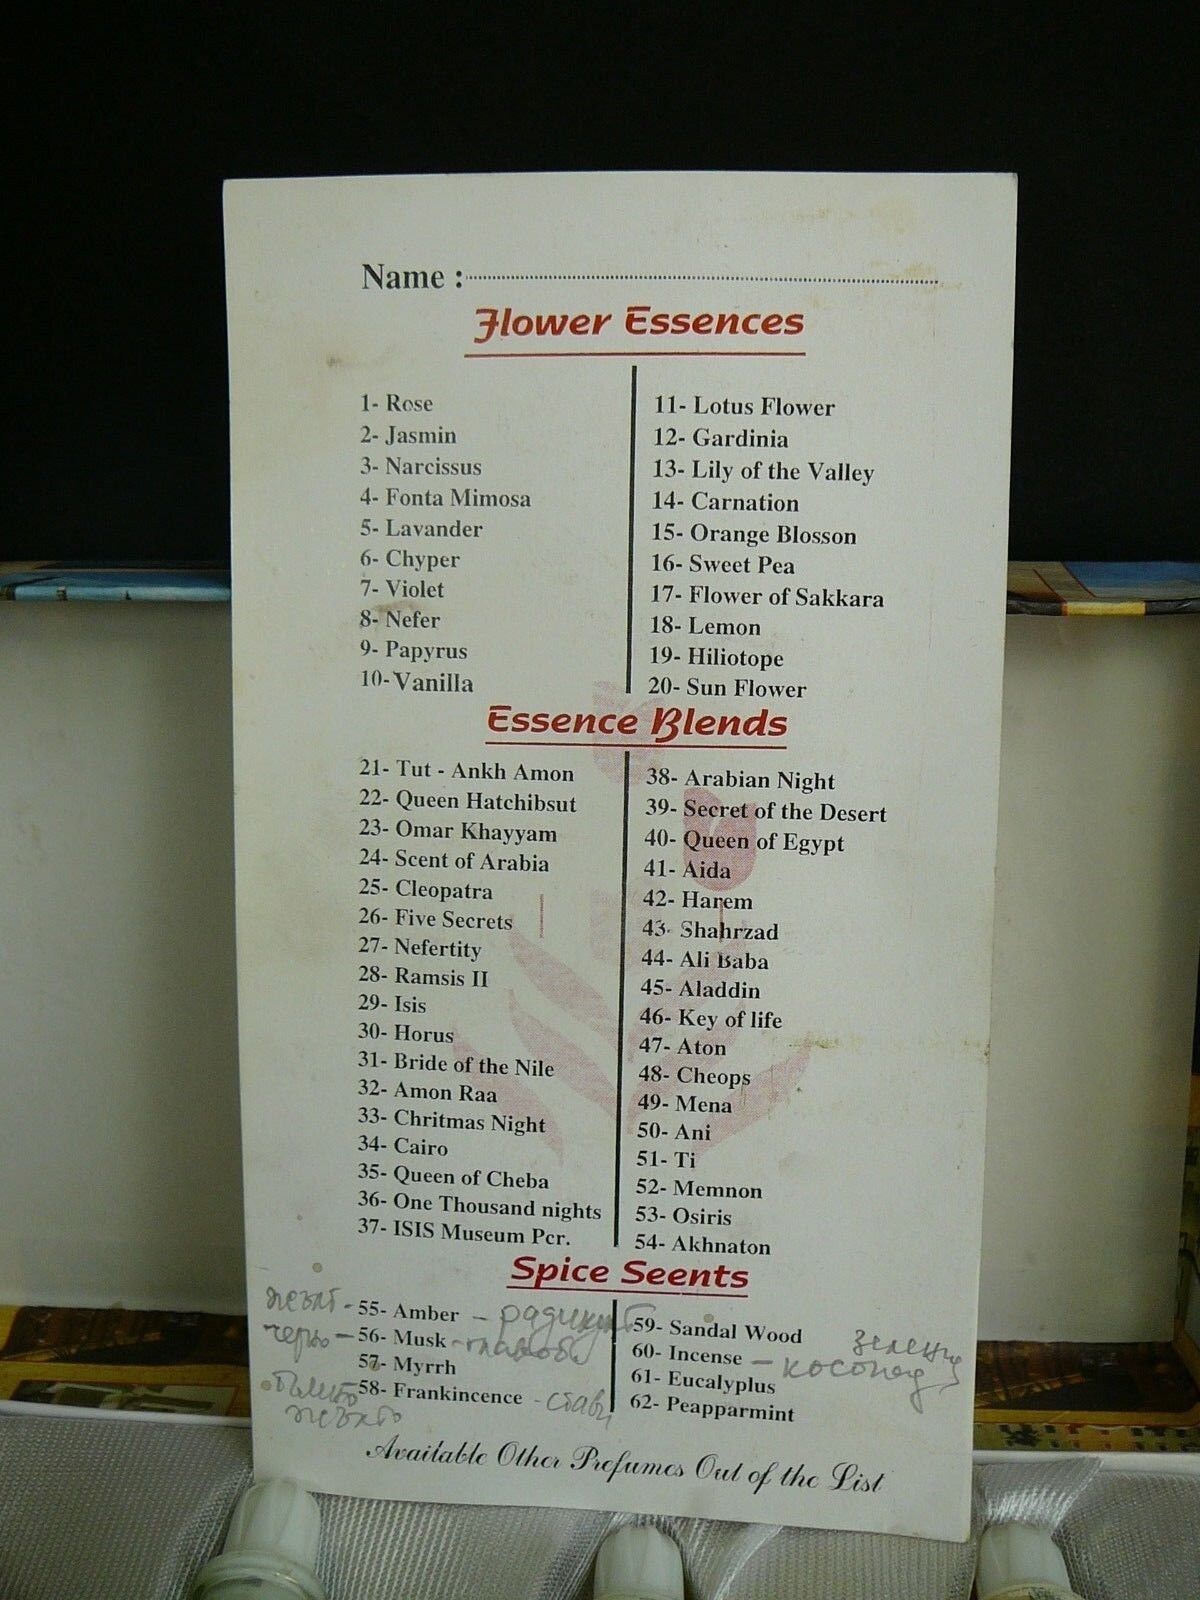 Name :
Flower Essences
1- Rose
2- Jasmin
3- Narcissus
4- Fonta Mimosa
5- Lavander
6- Chyper
7- Violet
8- Nefer
9- Papyrus
10- Vanilla
11- Lotus Flower
12- Gardinia
13- Lily of the Valley
14- Carnation
15- Orange Blosson
16- Sweet Pea
17- Flower of Sakkara
18- Lemon
19- Hiliotope
20- Sun Flower
Essence Blends
21- Tut - Ankh Amon
22- Queen Hatchibsut
23- Omar Khayyam
24- Scent of Arabia
25- Cleopatra
26- Five Secrets
27- Nefertity
28- Ramsis II
29- Isis
30- Horus
31- Bride of the Nile
32- Amon Raa
33- Chritmas Night
34- Cairo
35- Queen of Cheba
36- One Thousand nights
37- ISIS Museum Pcr.
38- Arabian Night
39- Secret of the Desert
40- Queen of Egypt
41- Aida
42- Harem
43- Shahrzad
44- Ali Baba
45- Aladdin
46- Key of life
47- Aton
48- Cheops
49- Mena
50- Ani
51- Ti
52- Memnon
53- Osiris
54- Akhnaton
Spice Seents
55- Amber - радикулит
56- Musk
57- Myrrh
58- Frankincence - стави
59- Sandal Wood
60- Incense - косопад
61- Eucalyplus
62- Peapparmint
Available Other Prefumes Out of the List